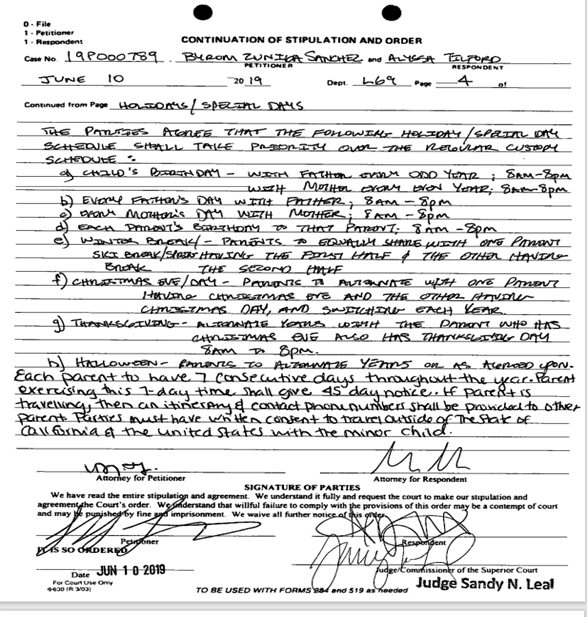 0 - File
1 - Petitioner
1 - Respondent
CONTINUATION OF STIPULATION AND ORDER
Case No. 19P000789 BYROM ZUNIGA SANCHEZ and ALYSSA TILFORD
PETITIONER RESPONDENT
JUNE 10 2019 Dept. L69 Page 4 of
Continued from Page HOLIDAYS/SPECIAL DAYS
THE PARTIES AGREE THAT THE FOLLOWING HOLIDAY/SPECIAL DAY
SCHEDULE SHALL TAKE PRIORITY OVER THE REGULAR CUSTODY
SCHEDULE:
a) CHILD'S BIRTHDAY - WITH FATHER EVERY ODD YEAR; 8AM-8PM
WITH MOTHER EVERY EVEN YEAR; 8AM-8PM
b) EVERY FATHER'S DAY WITH FATHER; 8AM-8PM
c) EVERY MOTHER'S DAY WITH MOTHER; 8AM-8PM
d) EACH PARENT'S BIRTHDAY TO THAT PARENT; 8AM-8PM
e) WINTER BREAK/- PARENTS TO EQUALLY SHARE WITH ONE PARENT
SKI BREAK/ HAVING THE FIRST HALF & THE OTHER HAVING
BREAK THE SECOND HALF
f) CHRISTMAS EVE/DAY - PARENTS TO ALTERNATE WITH ONE PARENT
HAVING CHRISTMAS EVE AND THE OTHER HAVING
CHRISTMAS DAY, AND SWITCHING EACH YEAR.
g) THANKSGIVING - ALTERNATE YEARS WITH THE PARENT WHO HAS
CHRISTMAS EVE ALSO HAS THANKSGIVING DAY
8AM TO 8PM.
h) HALLOWEEN - PARENTS TO ALTERNATE YEARS OR AS AGREED UPON.
Each parent to have 7 consecutive days throughout the year. Parent
exercising this 7-day time shall give 45 day notice. If parent is
travelling, then an itinerary & contact phone numbers shall be provided to other
parent Parties must have written consent to travel outside of the State of
California & the United States with the minor child.
Attorney for Petitioner Attorney for Respondent
SIGNATURE OF PARTIES
We have read the entire stipulation and agreement. We understand it fully and request the court to make our stipulation and
agreement the Court's order. We understand that willful failure to comply with the provisions of this order may be a contempt of court
and may be punished by fine and imprisonment. We waive all further notice of this order.
Petitioner Respondent
IT IS SO ORDERED
Date JUN 10 2019 Judge/Commissioner of the Superior Court
For Court Use Only Judge Sandy N. Leal
(R 3/03) TO BE USED WITH FORMS 284 and 519 as needed